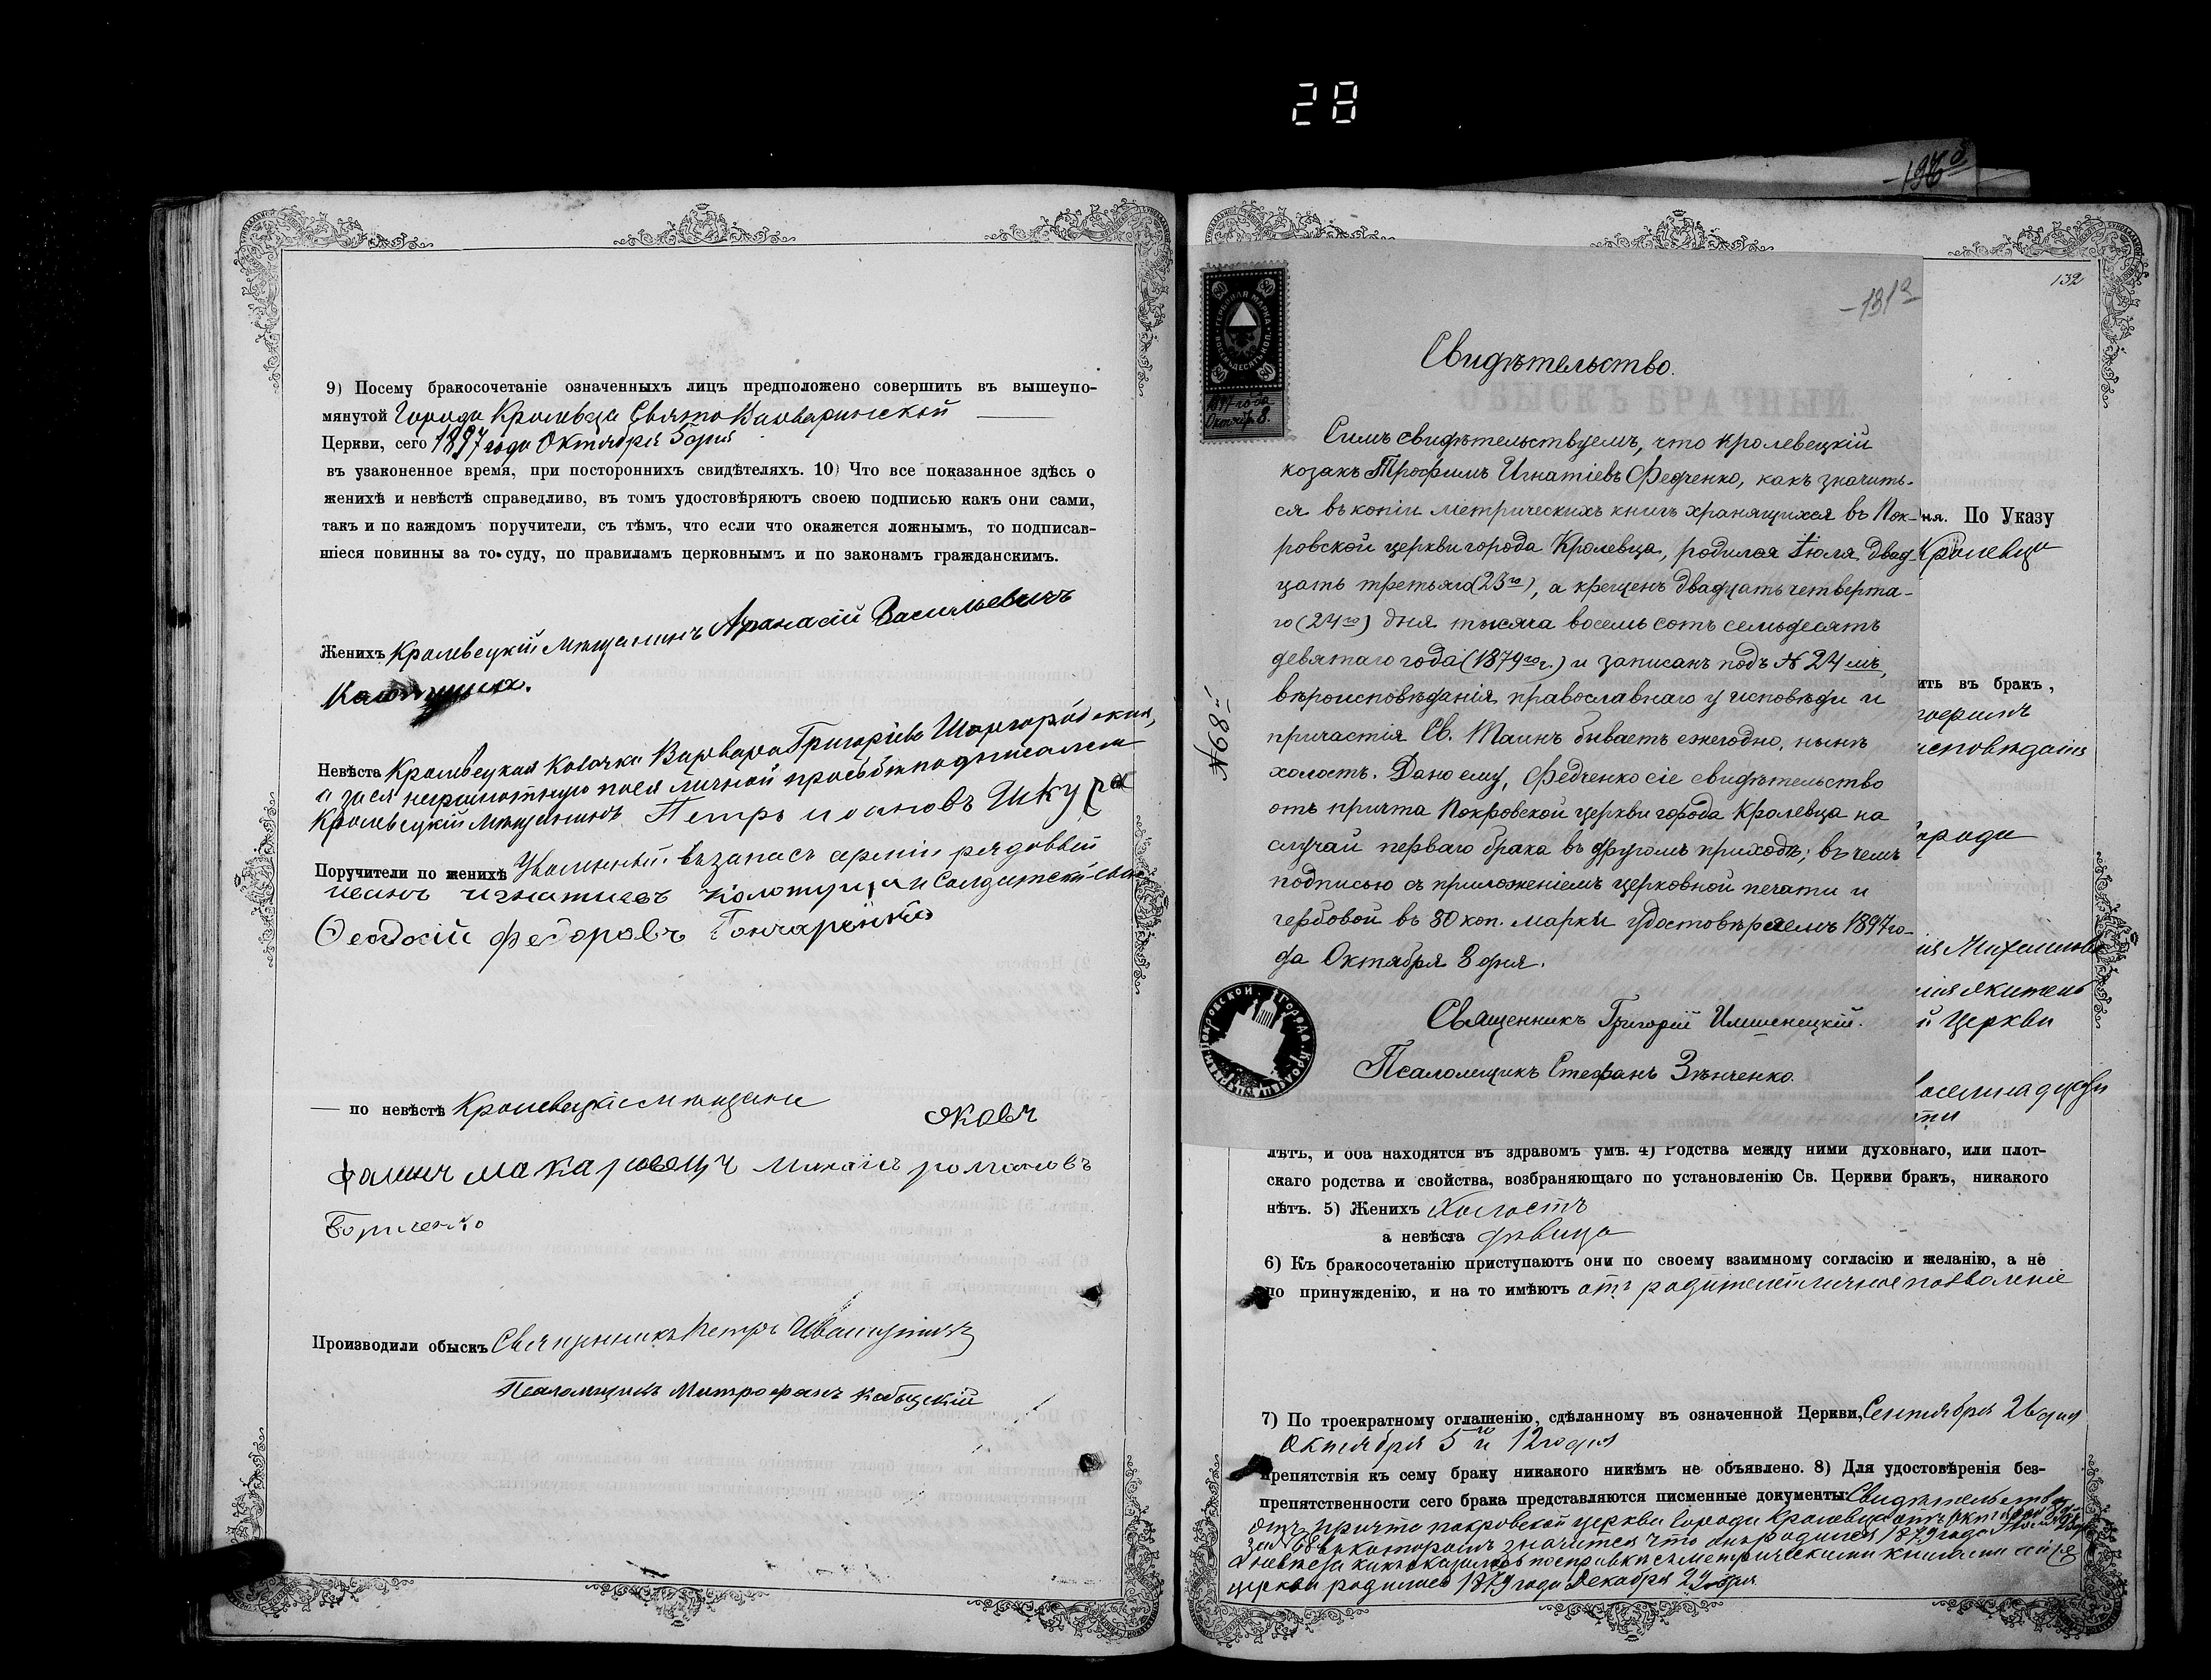 28
9) Посему бракосочетаніе означенныхъ лицъ предположено совершить въ вышеупо-
мянутой Города Кролевца Свято Варваринской
Церкви, сего 1897 года Октября 5 дня
въ узаконенное время, при постороннихъ свидѣтеляхъ. 10) Что все показанное здѣсь о
женихѣ и невѣстѣ справедливо, въ томъ удостовѣряютъ своею подписью какъ они сами,
такъ и по каждомъ поручители, съ тѣмъ, что если что окажется ложнымъ, то подписав-
шіеся повинны за то суду, по правиламъ церковнымъ и по законамъ гражданскимъ.
Женихъ Кролевецкій мѣщанинъ Афанасій Васильевичъ
Невѣста Кролевецкая козачка Варвара Григоріева Шаргородская,
а за ея неграмотную по ея личной просьбѣ подписался
Кролевецкій мѣщанинъ Петръ Иоановъ Шкура
Поручители по женихѣ Уволенный въ запасъ арміи рядовый
иванъ игнатиевъ Колотуша и Солдатскій сынъ
Ѳеодосій Федоровъ Гончаренко
— по невѣстѣ Кролевецкіе мѣщане
Яковъ
Макаровъ романовъ
Производили обыскъ Священникъ Петръ
Псаломщикъ Митрофанъ
132
-131 а
1897 года
Октябр. 8.
Свидѣтельство.
Симъ свидѣтельствуемъ, что кролевецкій
козакъ Трофимъ Игнатіевъ Федченко, какъ значить-
ся въ копіи метрическихъ книгъ хранящихся въ Пок-
ровской церкви города Кролевца, родился Іюля двад-
цать третьяго (23го), а крещенъ двадцать четверта-
го (24го) дня тысяча восемь сотъ семьдесятъ
девятаго года (1879го г.) и записанъ подъ № 24 мъ,
вѣроисповѣданія православнаго у исповѣди и
причастія Св. Таинъ бываетъ ежегодно, нынѣ
холостъ. Дано ему, Федченко сіе свидѣтельство
отъ причта Покровской церкви города Кролевца на
случай перваго брака въ другомъ приходѣ; въ чемъ
подписью съ приложеніемъ церковной печати и
гербовой въ 80 коп. марки удостовѣряемъ 1897 го-
да Октября 8 дня.
Священникъ Григорій Имшенецкій.
Псаломщикъ Стефанъ Зѣнченко.
№ 68
ня. По Указу
Кролевца
ить въ бракъ,
исповѣданія
города
й церкви
лѣтъ, и оба находятся въ здравомъ умѣ. 4) Родства между ними духовнаго, или плот-
скаго родства и свойства, возбраняющаго по установленію Св. Церкви бракъ, никакого
нѣтъ. 5) Женихъ Холостъ
а невѣста дѣвица
6) Къ бракосочетанію приступаютъ они по своему взаимному согласію и желанію, а не
по принужденію, и на то имѣютъ отъ родителей личное позволеніе
7) По троекратному оглашенію, сдѣланному въ означенной Церкви, Сентября 26 дня
Октября 5 го и 12 го дня
препятствія къ сему браку никакого никѣмъ не объявлено. 8) Для удостовѣренія без-
препятственности сего брака представляются писменные документы: Свидѣтельство
отъ причта покровской церкви города Кролевца
за № 68 въ которомъ значится что онъ родился 1879 года
а невѣста какъ оказалось по справкѣ съ метрическими книгами
церкви родилась 1879 года Декабря